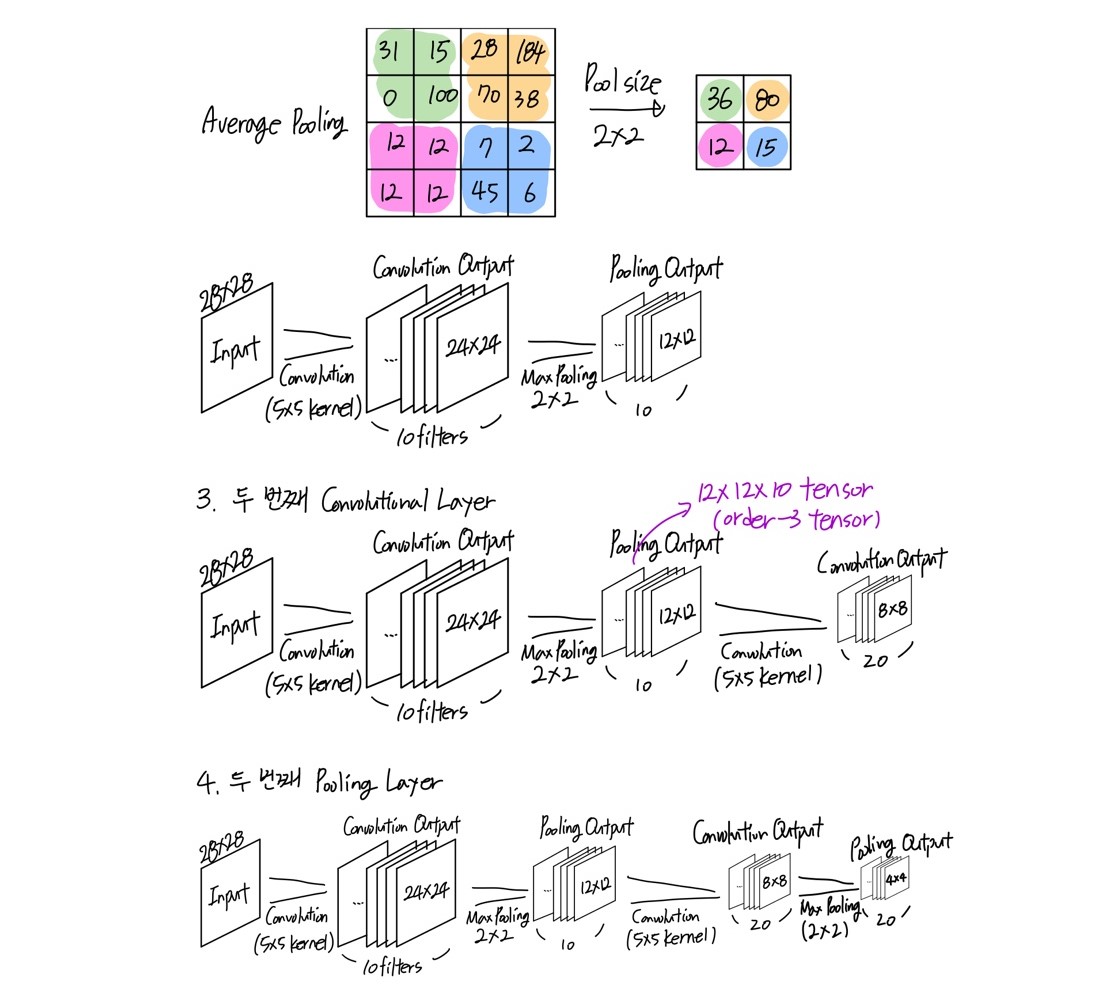 Average Pooling
31 15 28 184
0 100 70 38
12 12 7 2
12 12 45 6
Pool size
2×2
36 80
12 15
28×28
Input
Convolution
(5×5 kernel)
Convolution Output
...
24×24
10 filters
Max Pooling
2×2
Pooling Output
...
12×12
10
3. 두 번째 Convolutional Layer
12×12×10 tensor
(order-3 tensor)
28×28
Input
Convolution
(5×5 kernel)
Convolution Output
...
24×24
10 filters
Max Pooling
2×2
Pooling Output
...
12×12
10
Convolution
(5×5 kernel)
Convolution Output
...
8×8
20
4. 두 번째 Pooling Layer
28×28
Input
Convolution
(5×5 kernel)
Convolution Output
...
24×24
10 filters
Max Pooling
2×2
Pooling Output
...
12×12
10
Convolution
(5×5 kernel)
Convolution Output
...
8×8
20
Max Pooling
(2×2)
Pooling Output
...
4×4
20